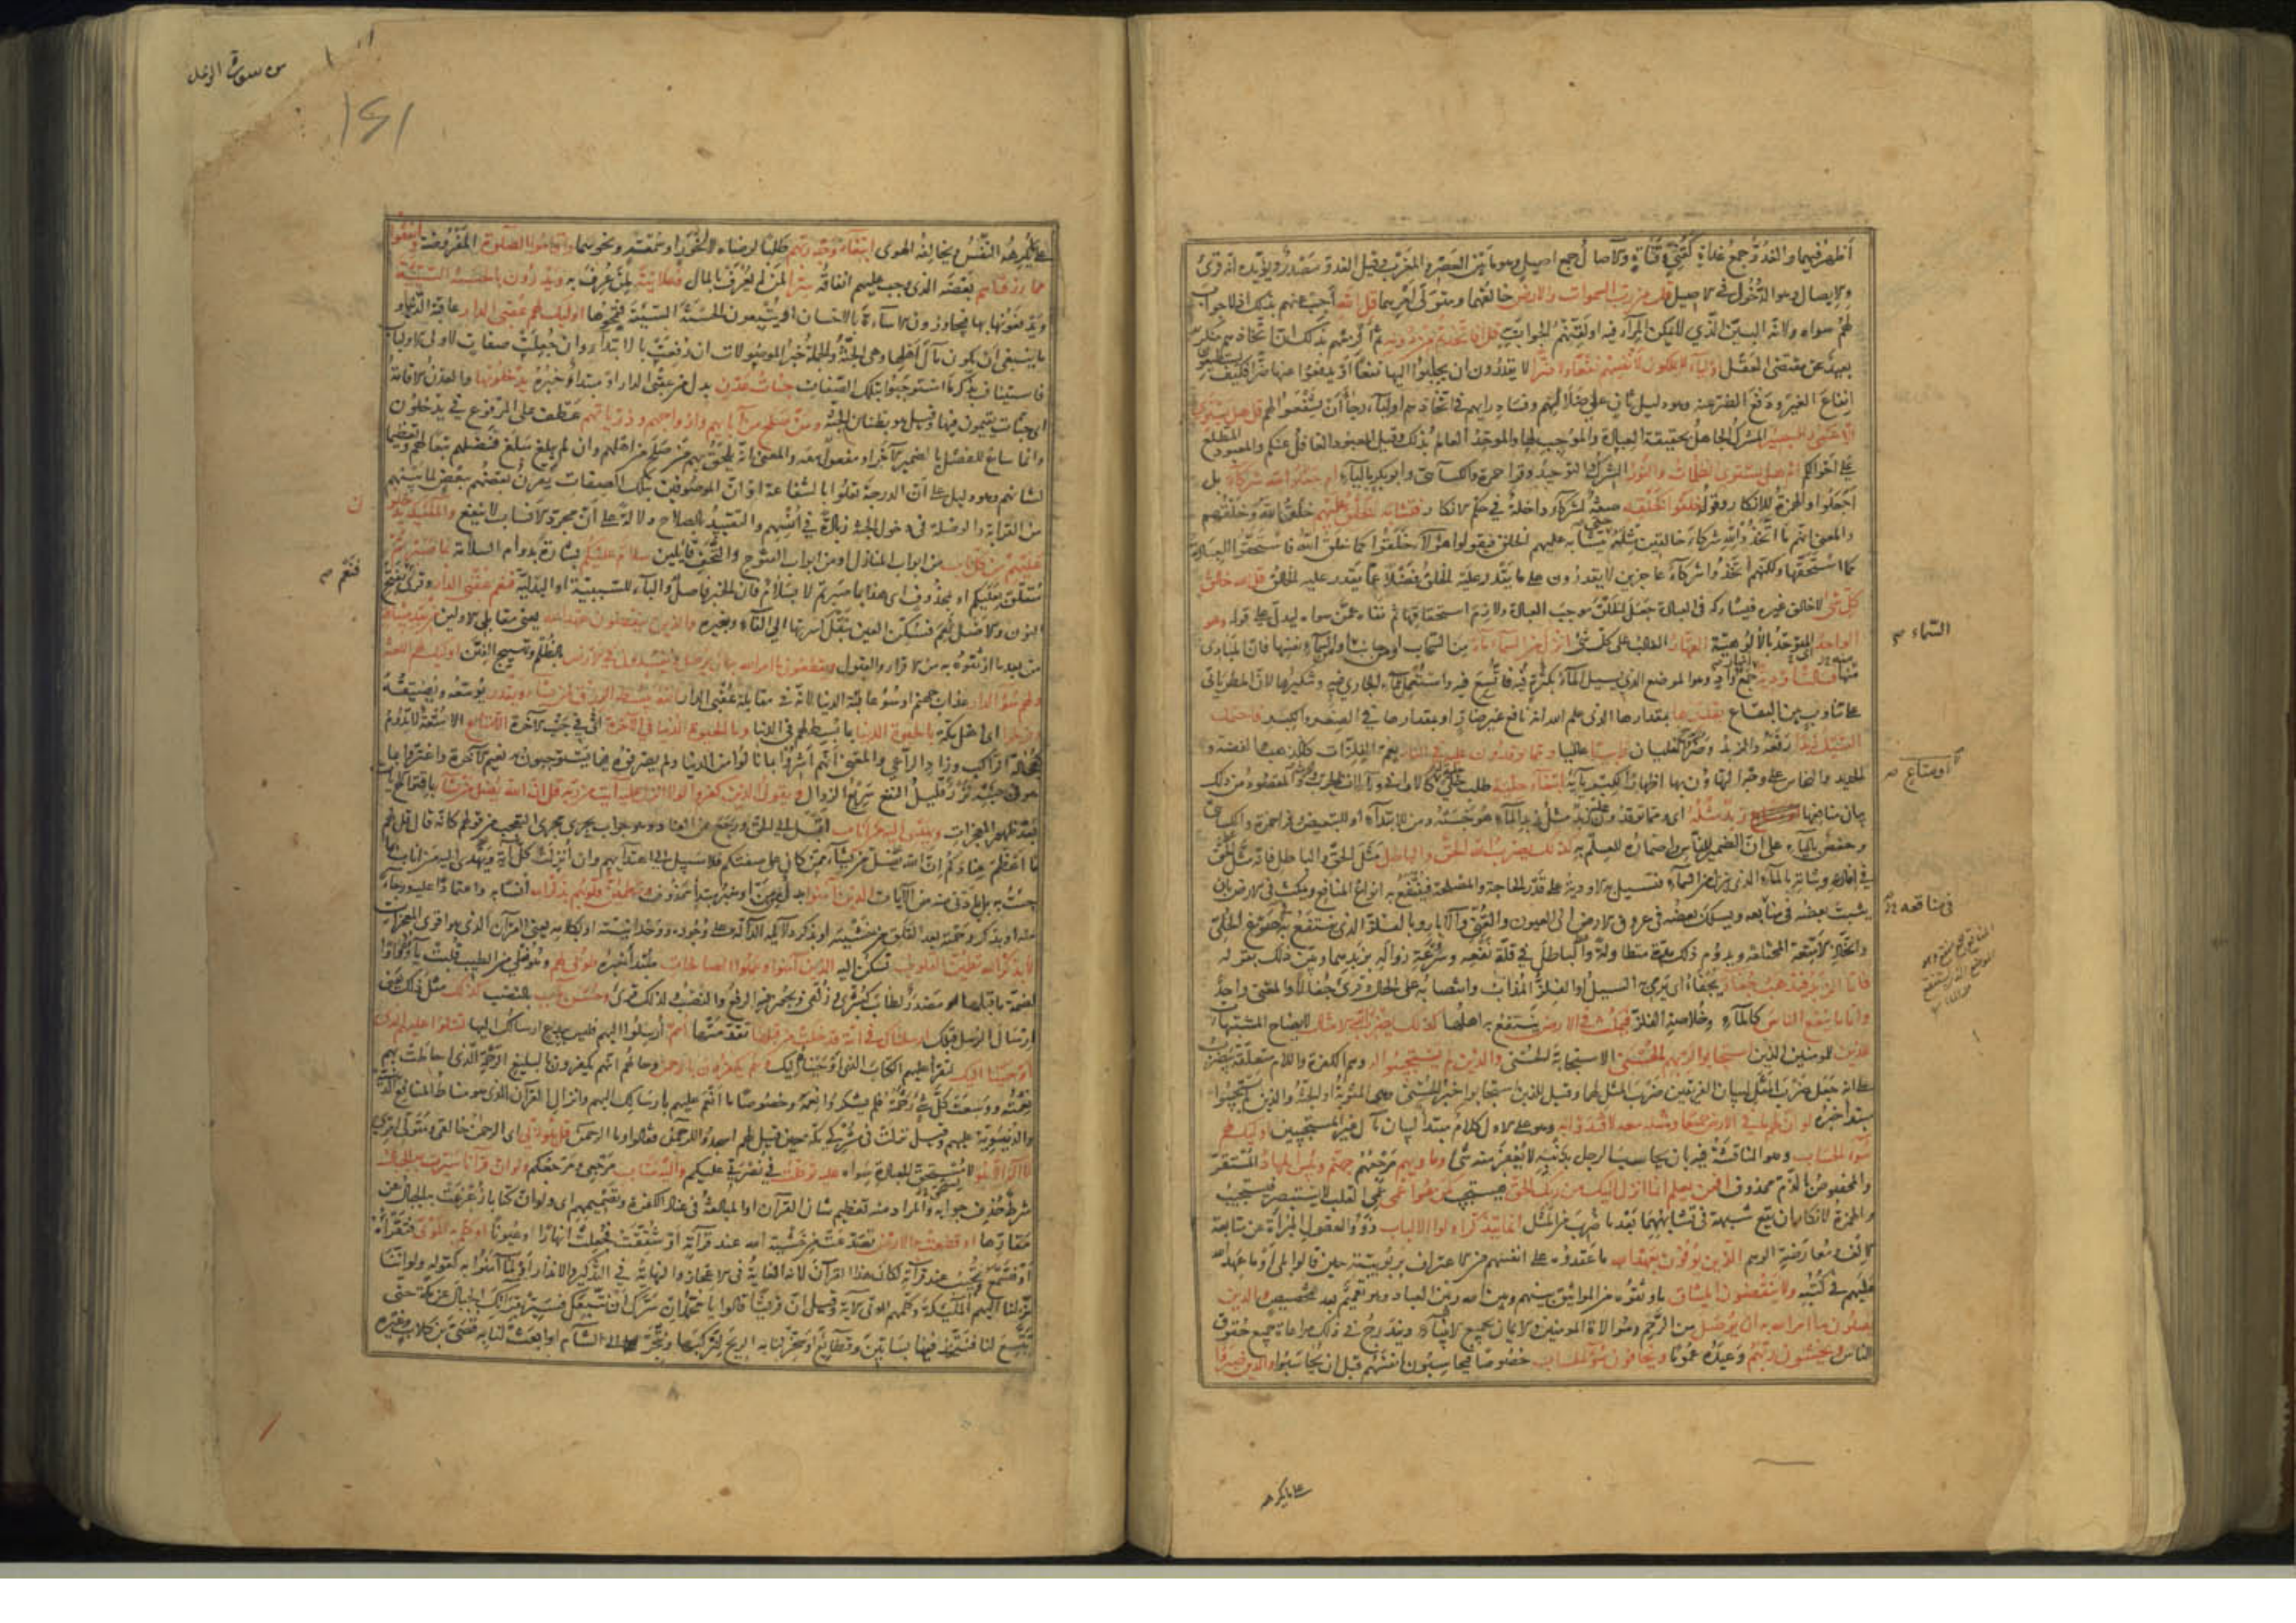 أظهر فيهما والغدو جمع غداة كقني وقناة والآصال جمع اصيل وهو ما بين العصر والمغرب وقيل الغدو مصدر ويؤيده انه قرئ
والايصال وهو الدخول في الاصيل قل من رب السموات والارض خالقهما ومتولي امرهما قل الله أجب عنهم بذلك اذ لا جواب
لهم سواه ولانه البين الذي لا يمكن المراء فيه اولقنهم الجواب به قل افاتخذتم من دونه ثم ألزمهم بذلك لان اتخاذهم منكر
بعيد عن مقتضى العقل اولياء لا يملكون لانفسهم نفعا ولا ضرا لا يقدرون ان يجلبوا اليها نفعا او يدفعوا عنها ضرا فكيف يستطيعون
انفاع الغير ودفع الضر عنه وهو دليل ثان على ضلالهم وفساد رايهم في اتخاذهم اولياء رجاء أن يشفعوا لهم قل هل يستوي
الاعمى والبصير المشرك الجاهل بحقيقة العبادة والموجب لها والموحد العالم بذلك وقيل المعبود الغافل عنكم والمعبود المطلع
على احوالكم ام هل تستوى الظلمات والنور الشرك والتوحيد وقرا حمزة والكسائي وابو بكر بالياء ام جعلوا لله شركاء بل
أجعلوا والهمزة للانكار وقوله خلقوا كخلقه صفة لشركاء داخلة في حكم الانكار فتشابه الخلق عليهم خلق الله وخلقهم
والمعنى انهم ما اتخذوا لله شركاء خالقين مثله حتى يتشابه عليهم الخلق فيقولوا هؤلاء خلقوا كما خلق الله فاستحقوا العبادة
كما استحقها ولكنهم اتخذوا شركاء عاجزين لا يقدرون على ما يقدر عليه الخلق فضلا عما يقدر عليه الخالق قل الله خالق
كل شئ لا خالق غيره فيشاركه في العبادة جعل الخلق موجب العبادة ولازم استحقاقها ثم نفاه عمن سواه ليدل على قوله وهو
الواحد المتوحد بالالوهية القهار الغالب على كل شئ انزل من السماء ماء من السحاب او من جانب السماء او من السماء نفسها فان المبادئ
منها فسالت اودية جمع واد وهو الموضع الذي يسيل الماء فيه بكثرة فاتسع فيه واستعمل للماء الجاري فيه وتنكيرها لان المطر يأتي
على تناوب بين البقاع بقدرها بمقدارها الذي علم الله انه نافع غير ضار او بمقدارها في الصغر والكبر فاحتمل
السيل زبدا رفعه والزبد وضر الغليان رابيا عاليا ومما توقدون عليه في النار يعم الفلزات كالذهب والفضة و
الحديد والنحاس على وجه التهاون بها اظهارا لكبريائه ابتغاء حلية طلب حلي او متاع كالاواني وآلات الحرب والحرث والمقصود من ذلك
بيان منافعها زبد مثله اى ومما توقدون عليه زبد مثل زبد الماء هو خبثه ومن للابتداء او للتبعيض وقرا حمزة والكسائي
وحفص بالياء على ان الضمير للناس واضماره للعلم به كذلك يضرب الله الحق والباطل مثل الحق والباطل فانه مثل الحق
في افادته وثباته بالماء الذي ينزل من السماء فتسيل به الاودية على قدر الحاجة والمصلحة فينتفع به انواع المنافع ويمكث في الارض بان
يثبت بعضه في منابعه ويسلك بعضه في عروق الارض الى العيون والقنى والآبار وبالفلز الذي ينتفع به في صوغ الحلي
واتخاذ الامتعة المختلفة ويدوم ذلك مدة متطاولة والباطل في قلة نفعه وسرعة زواله بزبدهما وبين ذلك بقوله
فاما الزبد فيذهب جفاء يجفاء اى يرمى به السيل او الفلز المذاب وانتصابه على الحال وقرئ جفالا والمعنى واحد
واما ما ينفع الناس كالماء وخلاصة الفلز فيمكث في الارض ينتفع به اهلها كذلك يضرب الله الامثال لايضاح المشتبهات
للذين للمومنين الذين استجابوا لربهم الحسنى الاستجابة الحسنى والذين لم يستجيبوا له وهم الكفرة واللام متعلقة بيضرب
على انه جعل ضرب المثل لبيان الفريقين ضرب المثل لهما وقيل للذين استجابوا خبر الحسنى وهي المثوبة او الجنة والذين لم يستجيبوا
مبتدأ خبره لو ان لهم ما في الارض جميعا ومثله معه لافتدوا به وهو على الاول كلام مبتدأ لبيان مآل غير المستجيبين اولئك لهم
سوء الحساب وهو المناقشة فيه بان يحاسب الرجل بذنبه لا يغفر منه شئ وماويهم مرجعهم جهنم وبئس المهاد المستقر
والمخصوص بالذم محذوف افمن يعلم انما انزل اليك من ربك الحق فيستجيب كمن هو اعمى عمي القلب لا يستبصر فيستجيب
والهمزة لانكار ان يقع شبهة في تشابههما بعد ما ضرب من المثل انما يتذكر اولوا الالباب ذوو العقول المبرأة عن متابعة
الالف ومعارضة الوهم الذين يوفون بعهد الله ما عقدوه على انفسهم من الاعتراف بربوبيته حين قالوا بلى او ما عهد الله
عليهم في كتبه ولا ينقضون الميثاق ما وثقوه من المواثيق بينهم وبين الله وبين العباد وهو تعميم بعد تخصيص والذين
يصلون ما امر الله به ان يوصل من الرحم وموالاة المومنين والايمان بجميع الانبياء ويندرج في ذلك مراعاة جميع حقوق
الناس ويخشون ربهم وعيده عموما ويخافون سوء الحساب خصوصا فيحاسبون انفسهم قبل ان يحاسبوا والذين صبروا
السماء
او متاع
في منافعه
على ما يكرهه
من سورة الرعد
١٤١
على ما يكرهه النفس ويخالفه الهوى ابتغاء وجه ربهم طلبا لرضاه لا فخورا او سمعة ونحوهما واقاموا الصلوة المفروضة وانفقوا
مما رزقناهم بعضه الذي وجب عليهم انفاقه سرا لمن لم يعرف بالمال وعلانية لمن عرف به ويدرؤن بالحسنة السيئة
ويدفعونها بها فيجازون الاساءة بالاحسان او يتبعون الحسنة السيئة فتمحوها اولئك لهم عقبى الدار عاقبة الدنيا و
ما ينبغي ان يكون مآل اهلها وهي الجنة والجملة خبر الموصولات ان رفعت بالابتداء وان جعلت صفات لاولى الالباب
فاستيناف بذكر ما استوجبوا بتلك الصفات جنات عدن بدل من عقبى الدار او مبتدأ خبره يدخلونها والعدن الاقامة
اى جنات يقيمون فيها وقيل هو بطنان الجنة ومن صلح من آبائهم وازواجهم وذرياتهم عطف على المرفوع في يدخلون
وانما ساغ للفصل بالضمير الآخر او مفعول معه والمعنى انه يلحق بهم من صلح من اهلهم وان لم يبلغ مبلغ فضلهم تبعا لهم وتعظيما
لشانهم وهو دليل على ان الدرجة تعلو بالشفاعة او ان الموصوفين بتلك الصفات يقرن بعضهم ببعض لما بينهم
من القرابة والوصلة في دخول الجنة زيادة في انسهم والتقييد بالصلاح دلالة على أن مجرد الانساب لا ينفع والملئكة يدخلون
عليهم من كل باب من ابواب المنازل او من ابواب الفتوح والتحف قائلين سلام عليكم بشارة بدوام السلامة بما صبرتم
متعلق بعليكم او بمحذوف اى هذا بما صبرتم لا بسلام فان الخبر فاصل والباء للسببية او البدلية فنعم عقبى الدار وقرئ فنعم بفتح
النون والاصل نعم فسكن العين بنقل كسرتها الى الفاء وبغيره والذين ينقضون عهد الله يعني مقابلي الاولين من بعد ميثاقه
من بعد ما اوثقوه به من الاقرار والقبول ويقطعون ما امر الله به أن يوصل ويفسدون في الارض بالظلم وتهييج الفتن اولئك لهم اللعنة
ولهم سوء الدار عذاب جهنم او سوء عاقبة الدنيا لانه في مقابلة عقبى الدار الله يبسط الرزق لمن يشاء ويقدر يوسعه ويضيقه
وفرحوا اى اهل مكة بالحيوة الدنيا بما بسط لهم في الدنيا وما الحيوة الدنيا في الآخرة اى في جنب الآخرة الا متاع الا متعة لا تدوم
كعجالة الراكب وزاد الراعي والمعنى انهم أشروا بما نالوا من الدنيا ولم يصرفوه فيما يستوجبون به نعيم الآخرة واغتروا بما
هو في جنبه نزر قليل النفع سريع الزوال ويقول الذين كفروا لولا انزل عليه آية من ربه قل ان الله يضل من يشاء باقتراح الآيات
بعد ظهور المعجزات ويهدى اليه من اناب اقبل الى الحق ورجع عن العناد وهو جواب يجرى مجرى التعجب من قولهم كانه قال قل لهم
ما اعظم عنادكم ان الله يضل من يشاء ممن كان على صفتكم فلا سبيل الى اهتدائهم وان انزلت كل آية ويهدى اليه من اناب بما
جئت به بل بادنى منه من الآيات الذين آمنوا بدل من من او خبر مبتدأ محذوف وتطمئن قلوبهم بذكر الله انسا به واعتمادا عليه ورجاء
منه او بذكر رحمته بعد القلق من خشيته او بذكر دلائله الدالة على وجوده ووحدانيته او بكلامه يعني القرآن الذي هو اقوى المعجزات
الا بذكر الله تطمئن القلوب تسكن اليه الذين آمنوا وعملوا الصالحات مبتدأ خبره طوبى لهم وهو فعلى من الطيب قلبت ياؤه واوا
لضمة ما قبلها مصدر لطاب كبشرى وزلفى ويجوز فيه الرفع والنصب ولذلك قرئ وحسن مآب بالنصب كذلك مثل ذلك يعني
ارسال الرسل قبلك ارسلناك في امة قد خلت من قبلها تقدمتها امم أرسلوا اليهم فليس ببدع ارسالك اليها لتتلوا عليهم الذى
اوحينا اليك لتقرأ عليهم الكتاب الذي اوحيناه اليك وهم يكفرون بالرحمن وحالهم انهم يكفرون بالبليغ الرحمة الذي احاطت بهم
نعمته ووسعت كل شئ رحمته فلم يشكروا نعمه وخصوصا ما انعم عليهم بارسالك اليهم وانزال القرآن الذي هو مناط المنافع الدينية
والدنيوية عليهم وقيل نزلت في مشركي مكة حين قيل لهم اسجدوا للرحمن فقالوا وما الرحمن قل هو ربي اى الرحمن خالقي ومتولي امري
لا اله الا هو لا مستحق للعبادة سواه عليه توكلت في نصرتي عليكم واليه متاب مرجعي ومرجعكم ولو ان قرآنا سيرت به الجبال
شرط حذف جوابه والمراد منه تعظيم شان القرآن او المبالغة في عناد الكفرة وتصميمهم اى ولو ان كتابا زعزعت به الجبال عن
مقارها او قطعت به الارض تصدعت من خشية الله عند قرآءته او شققت فجعلت انهارا وعيونا او كلم به الموتى فتقرأه
او فتسمع وتجيب عند قرآءته لكان هذا القرآن لانه الغاية في الاعجاز والنهاية في التذكير والانذار او لما آمنوا به كقوله ولو اننا
نزلنا اليهم الملئكة وكلمهم الموتى الآية وقيل ان قريشا قالوا يا محمد ان سرك ان نتبعك فسير بقرآنك الجبال عن مكة حتى
تتسع لنا فنتخذ فيها بساتين وقطايع او سخر لنا به الريح لنركبها ونتجر الى الشام او ابعث لنا به قصي بن كلاب وغيره
فنعم